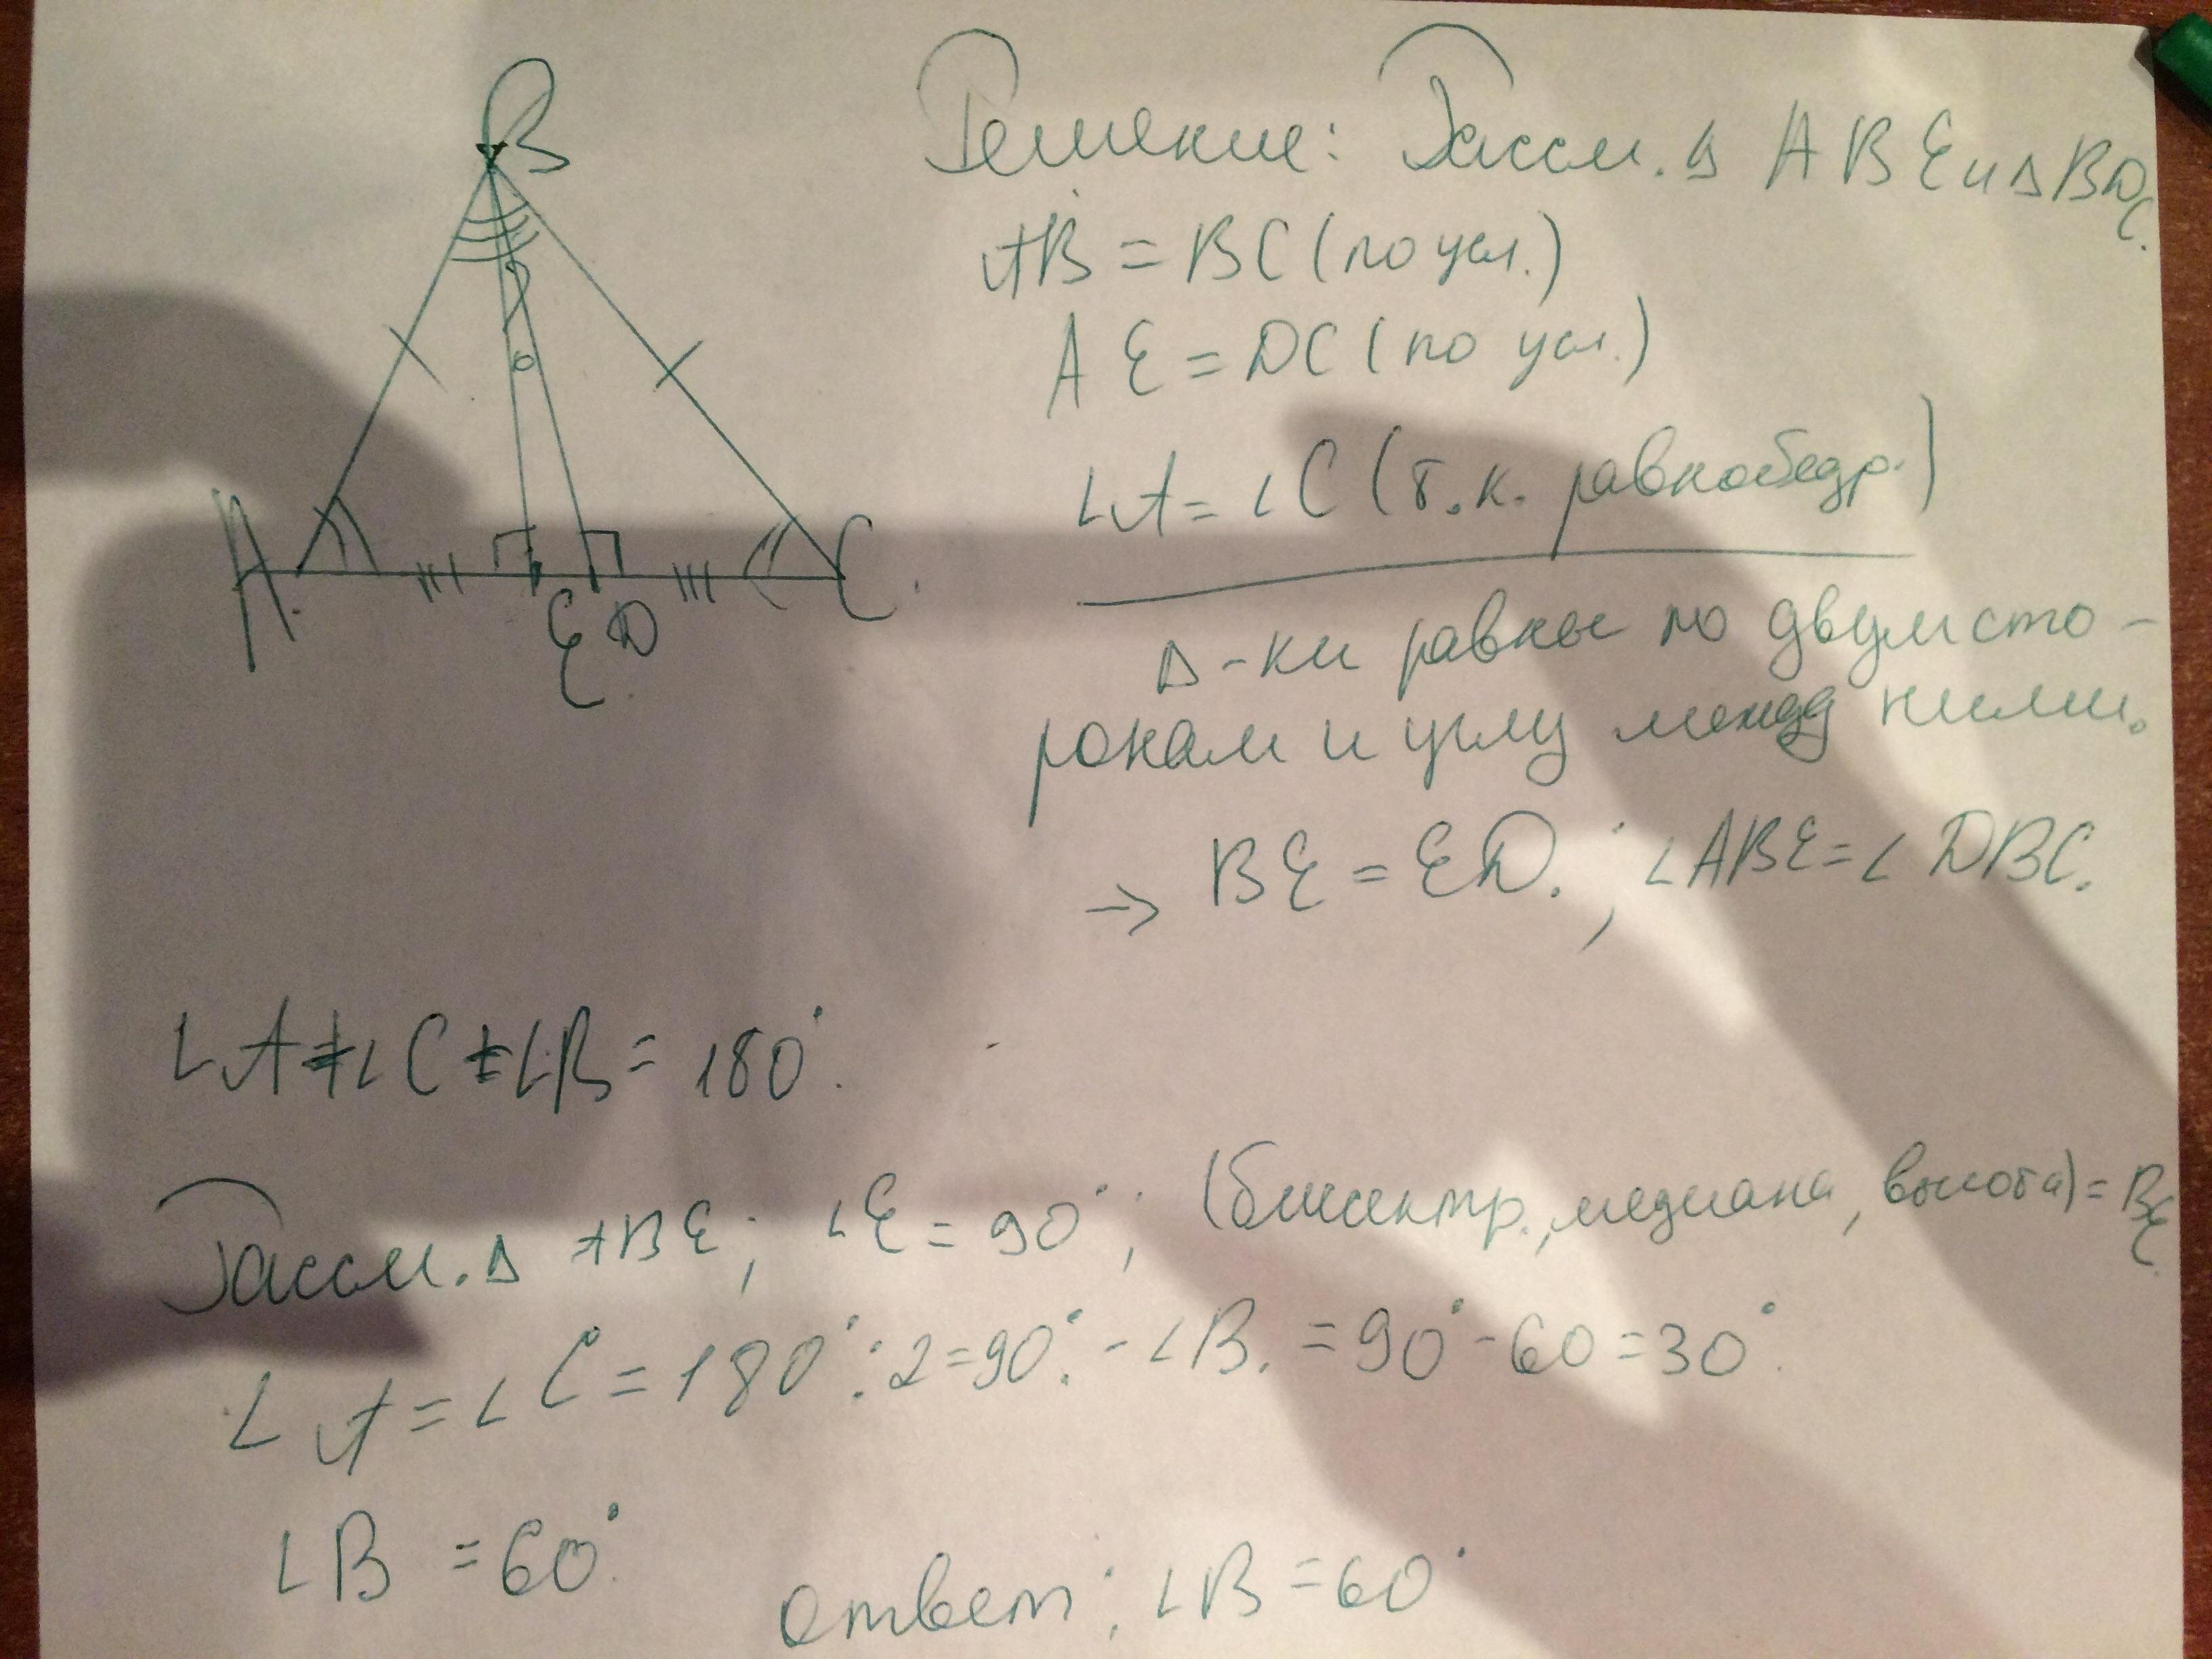 B
A
C
E D
Решение: Рассм. Δ ABE и Δ BDC.
AB = BC (по усл.)
AE = DC (по усл.)
∠A = ∠C (т.к. равнобедр.)
Δ-ки равны по двум сто-
ронам и углу между ними.
→ BE = ED. ; ∠ABE = ∠DBC.
∠A + ∠C + ∠B = 180°.
Рассм. Δ ABE; ∠E = 90°; (биссектр., медиана, высота) = BE
∠A = ∠C = 180° : 2 = 90°. - ∠B. = 90° - 60 = 30°.
∠B = 60°.
ответ: ∠B = 60°